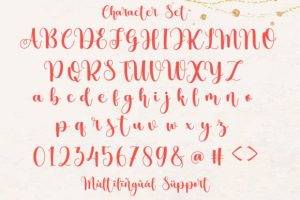 Character Set
ABCDEFGHIJKLMNO
PQRSTUVWXYZ
abcdefghijklmno
pqrstuvwxyz
0123456789&@#<>
Multilingual Support